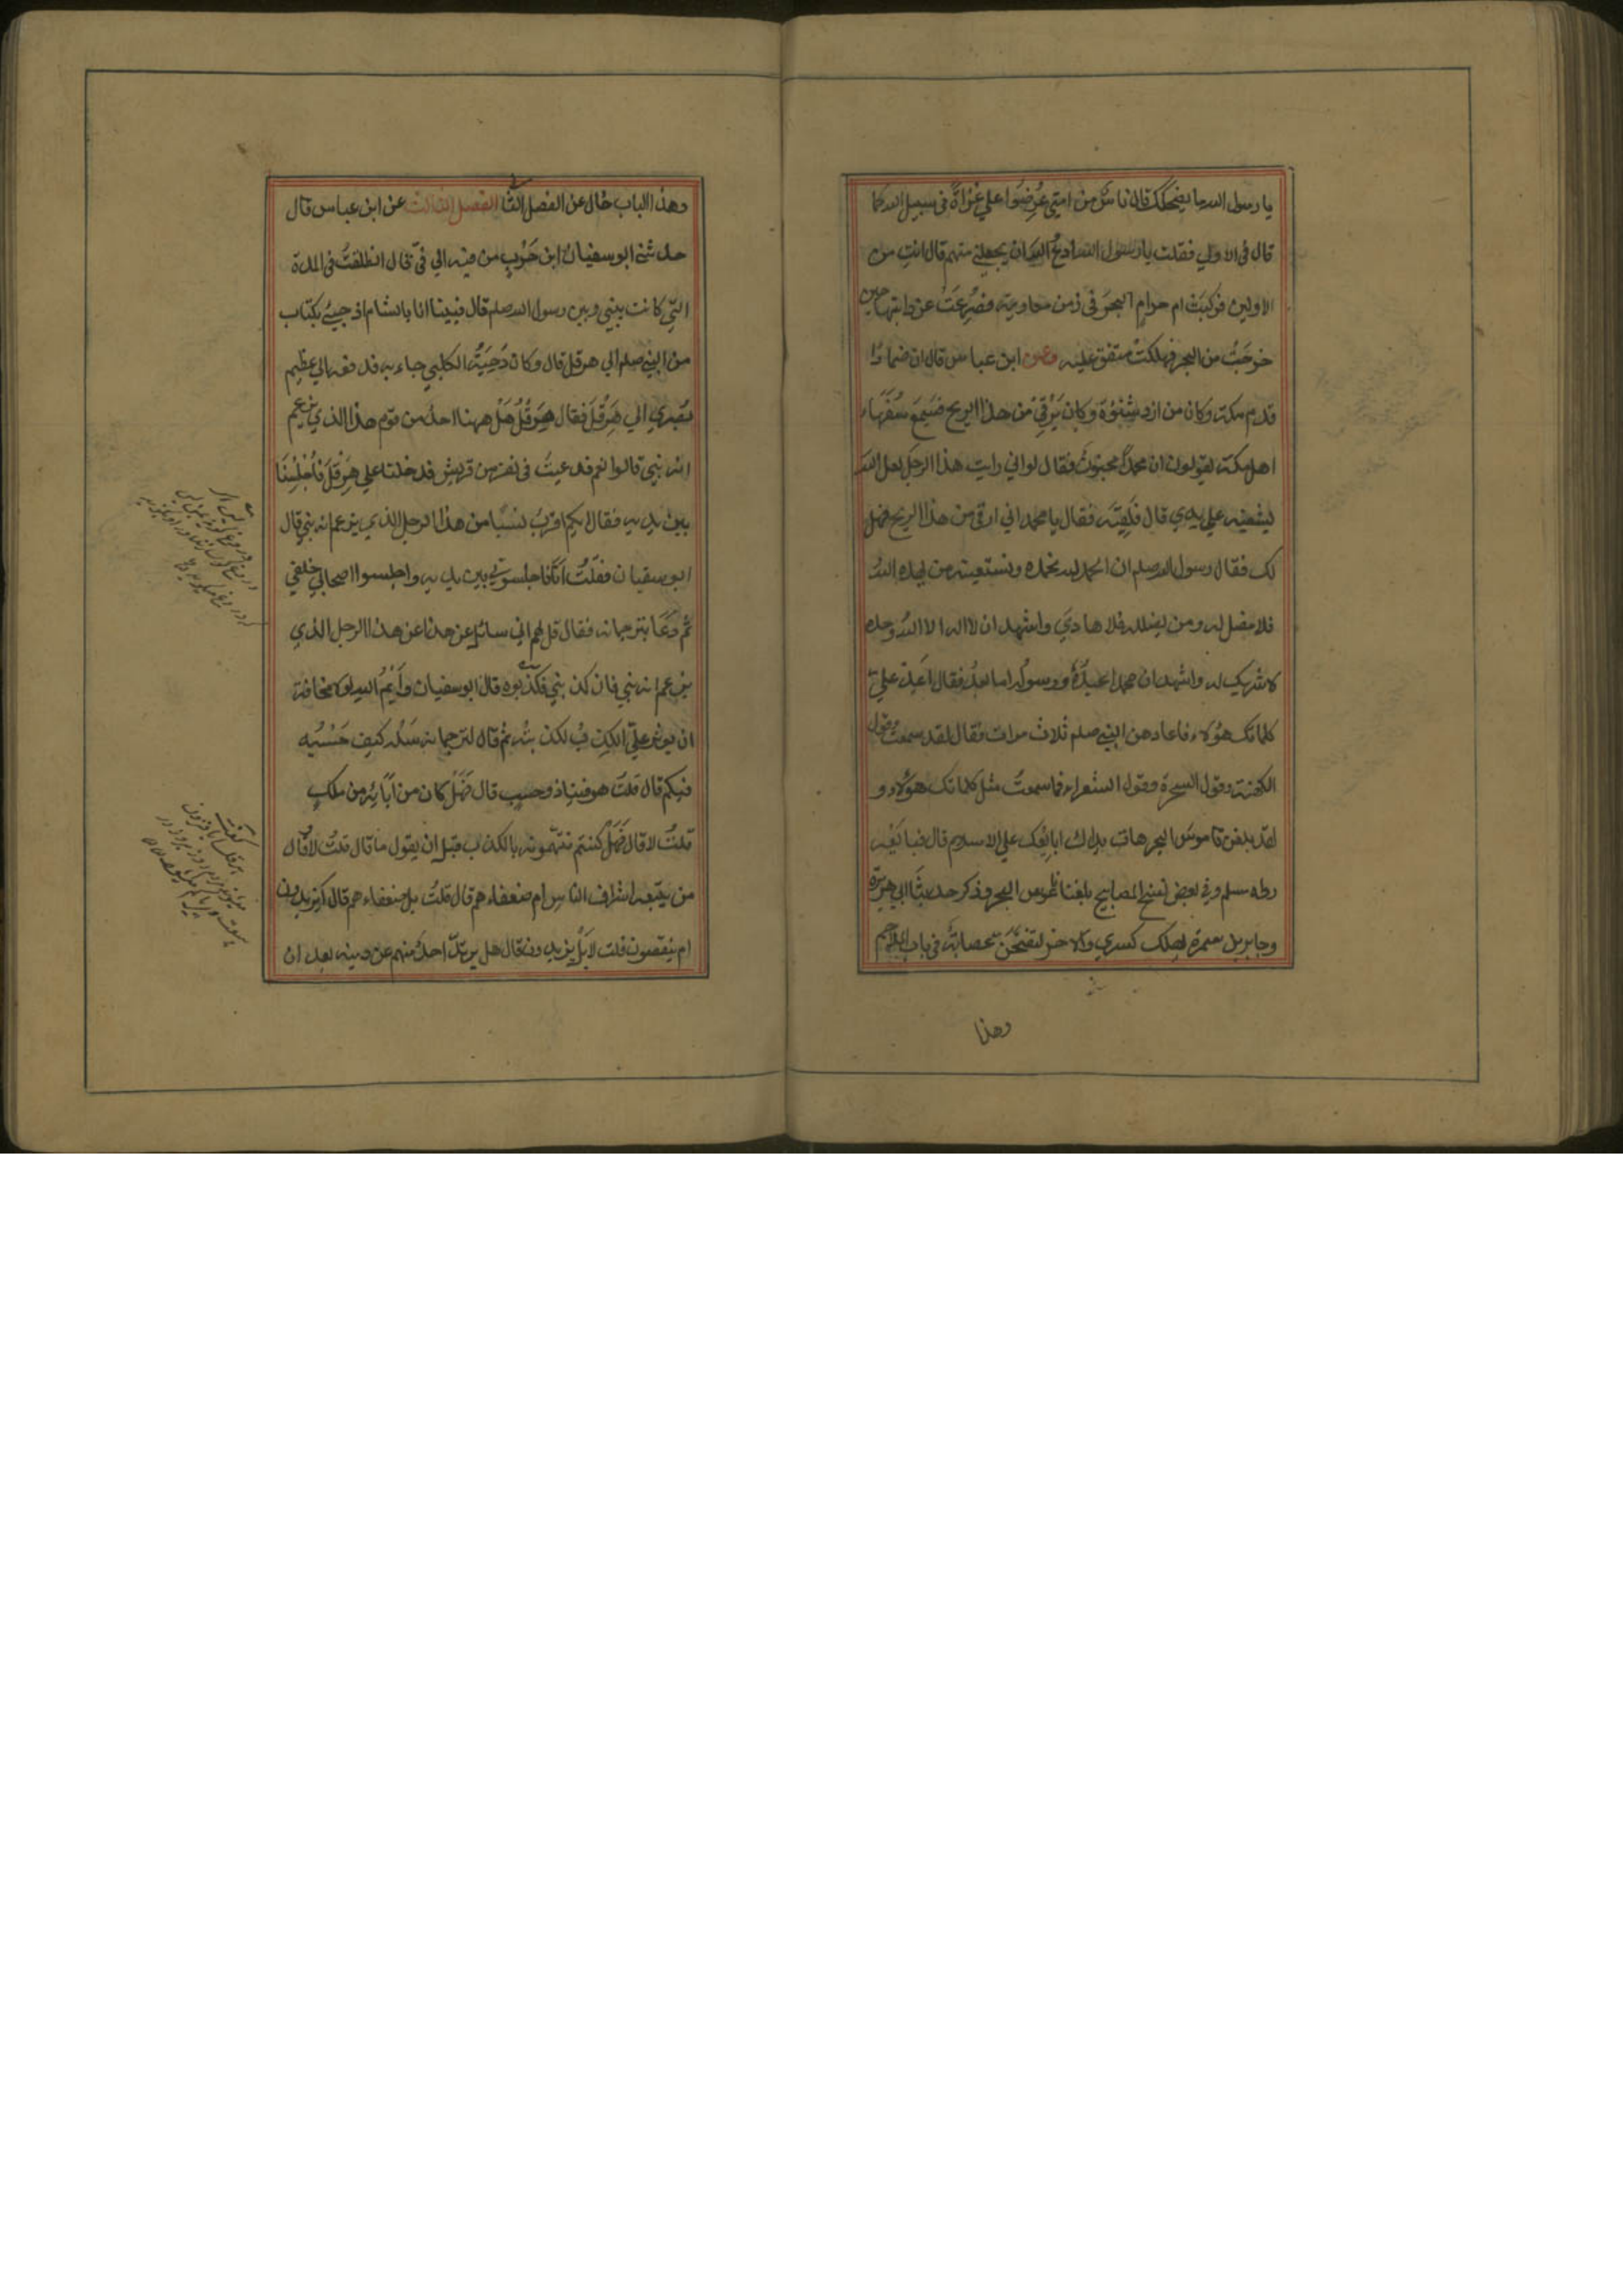 يا رسول الله ما يضحكك قال ناس من امتي عُرِضوا علي غزاة في سبيل الله كما
قال في الاولي فقلت يا رسول الله ادع الله ان يجعلني منهم قال انتِ من
الاولين فركبت ام حرام البحر في زمن معاوية فصرعت عن دابتها حين
خرجت من البحر فهلكت متفق عليه وعن ابن عباس قال ان ضمادًا
قدم مكة وكان من ازد شنوءة وكان يرقي من هذا الريح فسمع سفهاء
اهل مكة يقولون ان محمدًا مجنون فقال لو اني رايت هذا الرجل لعل الله
يشفيه علي يدي قال فلقيه فقال يا محمد اني ارقي من هذا الريح فهل
لك فقال رسول الله صلم ان الحمد لله نحمده ونستعينه من يهده الله
فلا مضل له ومن يضلله فلا هادي واشهد ان لا اله الا الله وحده
لا شريك له واشهد ان محمدا عبده ورسوله اما بعد فقال اعد علي
كلماتك هؤلاء فاعادهن النبي صلم ثلاث مرات فقال لقد سمعت قول
الكهنة وقول السحرة وقول الشعراء فما سمعت مثل كلماتك هؤلاء و
لقد بلغن قاموس البحر هات يدك ابايعك علي الاسلام قال فبايعه
رواه مسلم وفي بعض نسخ المصابيح بلغنا ناعوس البحر وذكر حديثا ابي هريرة
وجابر بن سمرة يهلك كسري والاخر لتفتحن عصابة في باب الملاحم
وهذا
وهذا الباب خال عن الفصل الثاني الفصل الثالث عن ابن عباس قال
حدثني ابو سفيان ابن حرب من فيه الي فيّ قال انطلقت في المدة
التي كانت بيني وبين رسول الله صلم قال فبينا انا بالشام اذ جيئ بكتاب
من النبي صلم الي هرقل قال وكان دحية الكلبي جاء به فدفعه الي عظيم
بصري الي هرقل فقال هرقل هل ههنا احد من قوم هذا الذي يزعم
انه نبي قالوا نعم فدعيت في نفر من قريش فدخلنا علي هرقل فاجلسنا
بين يديه فقال ايكم اقرب نسبا من هذا الرجل الذي يزعم انه نبي قال
ابو سفيان فقلت انا فاجلسوني بين يديه واجلسوا اصحابي خلفي
ثم دعا بترجمانه فقال قل لهم اني سائل عن هذا عن هذا الرجل الذي
يزعم انه نبي فان كذبني فكذبوه قال ابو سفيان وايم الله لولا مخافة
ان يوثر علي الكذب لكذبته ثم قال لترجمانه سله كيف حسبه
فيكم قال قلت هو فينا ذو حسب قال فهل كان من ابائه من ملك
قلت لا قال فهل كنتم تتهمونه بالكذب قبل ان يقول ما قال قلت لا قال
من يتبعه اشراف الناس ام ضعفاءهم قال قلت بل ضعفاءهم قال ايزيدون
ام ينقصون قلت لا بل يزيدون قال هل يرتد احد منهم عن دينه بعد ان